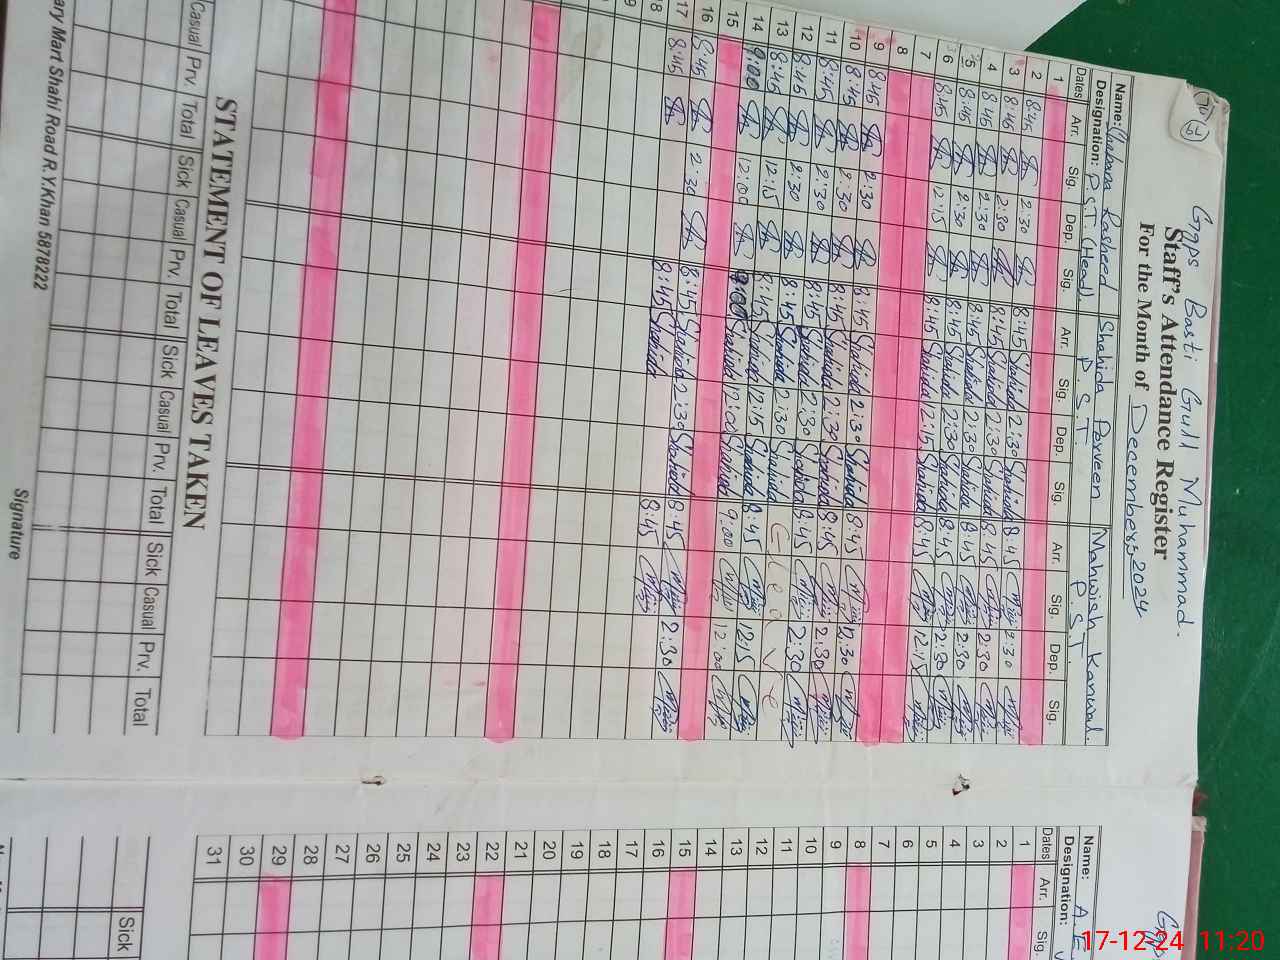 Ggps Basti Gull Muhammad.
Staff's Attendance Register
For the Month of December, 2024
Name: Shabana Rasheed Shahida Parveen Mahwish Kanwal.
Designation: P.S.T. (Head) P.S.T. P.S.T.
Dates Arr. Sig. Dep. Sig. Arr. Sig. Dep. Sig. Arr. Sig. Dep. Sig.
1
2 8:45 2:30 8:45 Shahida 2:30 Shahida 8:45 2:30
3 8:45 2:30 8:45 Shahida 2:30 Shahida 8:45 2:30
4 8:45 2:30 8:45 Shahida 2:30 Shahida 8:45 2:30
5 8:45 2:30 8:45 Shahida 2:30 Shahida 8:45 2:30
6 8:45 2:15 8:45 Shahida 12:15 Shahida 8:45 12:15
7
8
9 8:45 2:30 8:45 Shahida 2:30 Shahida 8:45 2:30
10 8:45 2:30 8:45 Shahida 2:30 Shahida 8:45 2:30
11 8:45 2:30 8:45 Shahida 2:30 Shahida 8:45 2:30
12 8:45 2:30 8:45 Shahida 2:30 Shahida Leave
13 8:45 12:15 8:45 Shahida 12:15 Shahida 8:45 12:15
14 9:00 12:00 9:00 Shahida 12:00 Shahida 9:00 12:00
15
16 8:45 2:30 8:45 Shahida 2:30 Shahida 8:45 2:30
17 8:45 8:45 Shahida 8:45
18
STATEMENT OF LEAVES TAKEN
Casual Prv. Total Sick Casual Prv. Total Sick Casual Prv. Total Sick Casual Prv. Total
Signature
Mart Shahi Road R.Y.Khan 5878222
Name: A.E.
Designation:
Dates Arr. Sig.
1
2
3
4
5
6
7
8
9
10
11
12
13
14
15
16
17
18
19
20
21
22
23
24
25
26
27
28
29
30
31
Sick
17-12-24 11:20